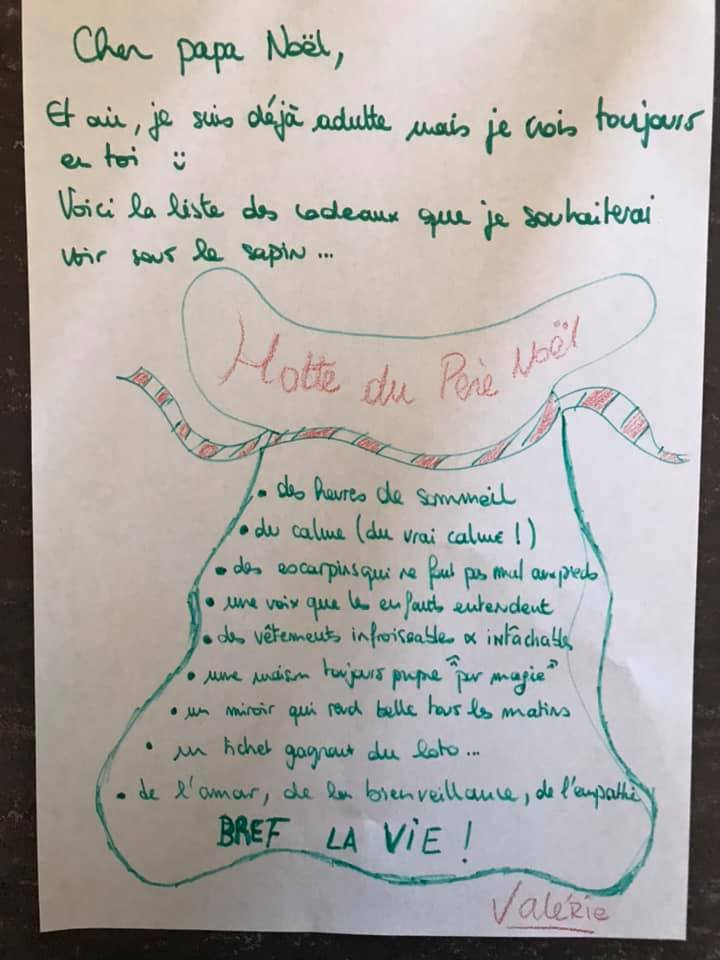 Cher papa Noël,
Et oui, je suis déjà adulte mais je crois toujours
en toi
Voici la liste des cadeaux que je souhaiterai
voir sous le sapin...
Hotte du Père Noël
• des heures de sommeil
• du calme (du vrai calme !)
• des escarpins qui ne font pas mal aux pieds
• une voix que les enfants entendent
• des vêtements infroissables & intâchables
• une maison toujours propre "par magie"
• un miroir qui rend belle tous les matins
• un ticket gagnant du loto...
• de l'amour, de la bienveillance, de l'empathie
BREF LA VIE !
Valérie